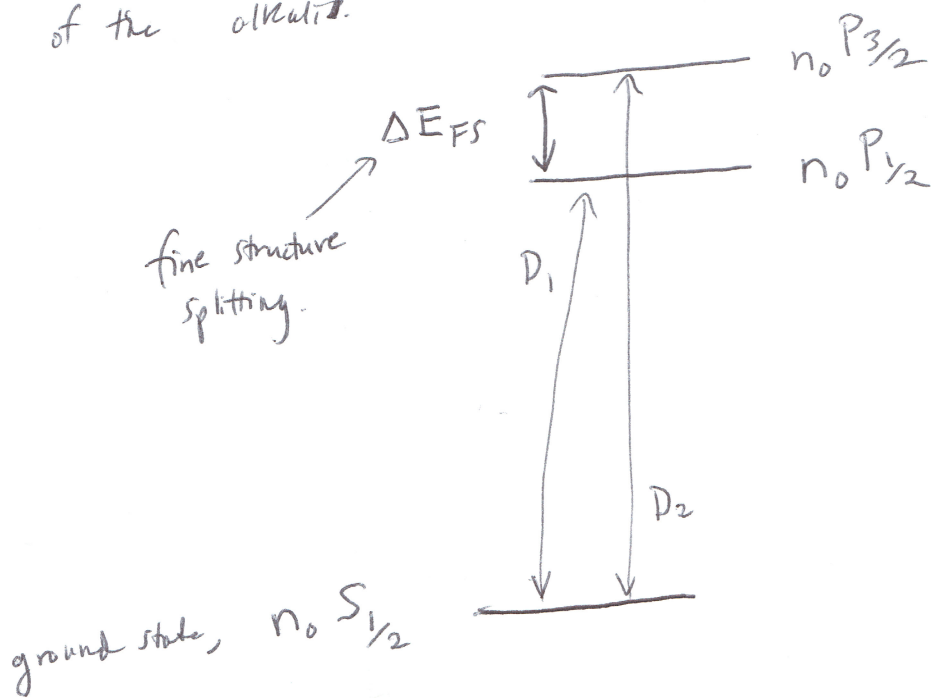 of the alkalis.
n₀ P3/2
ΔE FS
n₀ P1/2
fine structure
splitting.
D₁
D₂
ground state, n₀ S1/2